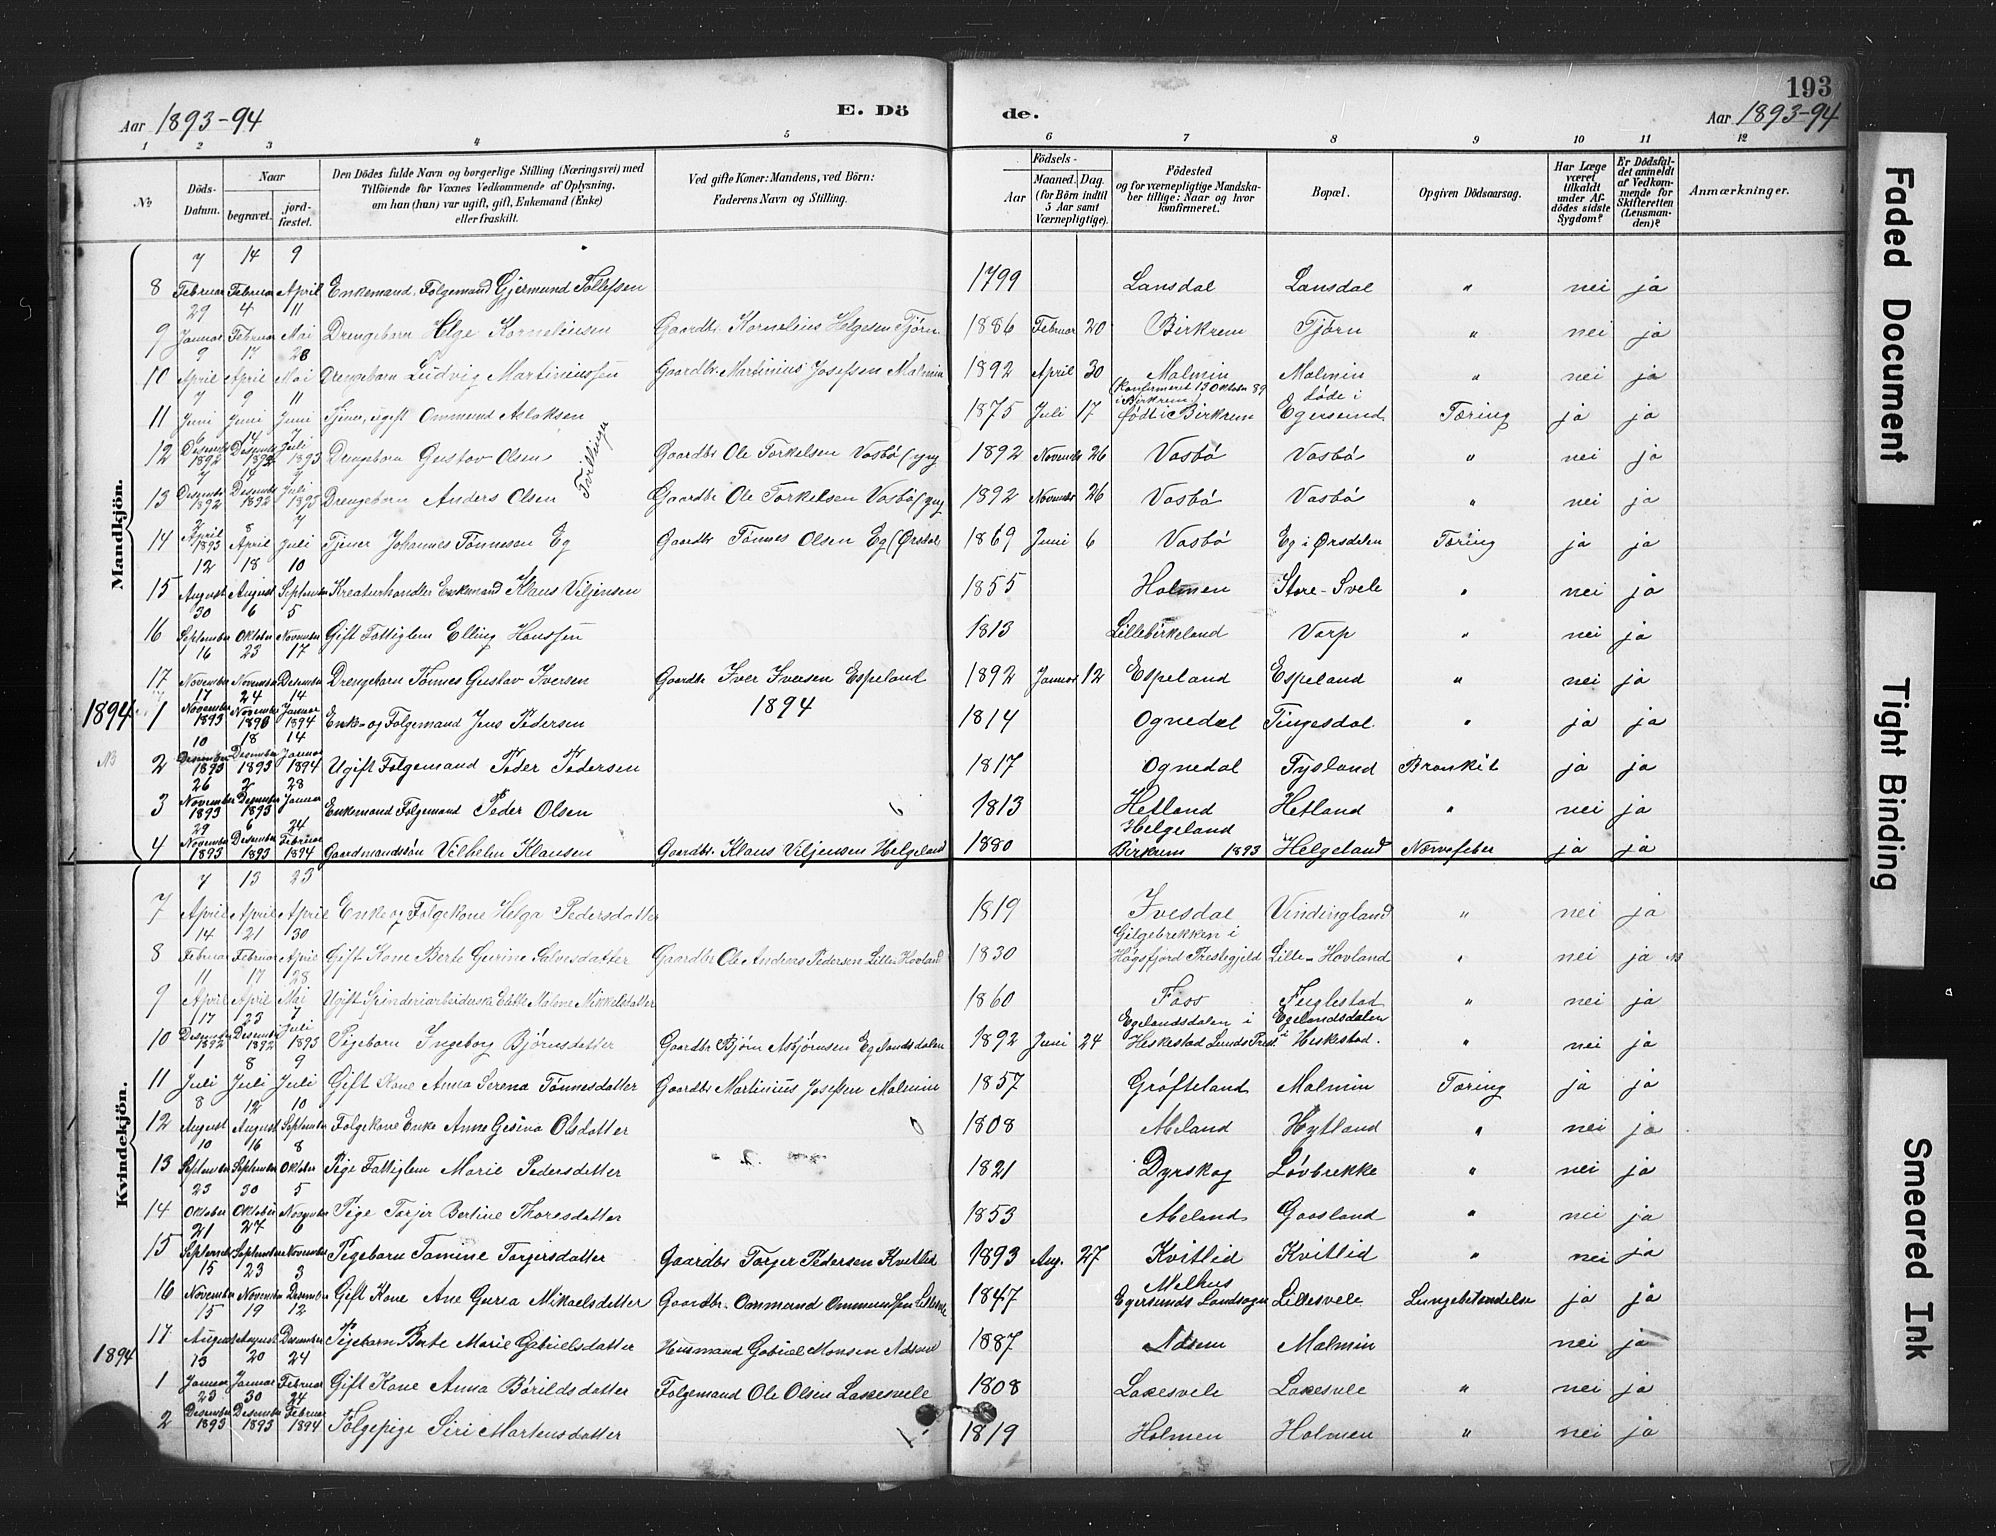 193
Aar 1893-94 E. Døde. Aar 1893-94
1 2 3 4 5 6 7 8 9 10 11 12
No
Döds-Datum.
Naar
begravet.
jord-fæstet.
Den Dödes fulde Navn og borgerlige Stilling (Næringsvei) med
Tilföiende for Voxnes Vedkommende af Oplysning,
om han (hun) var ugift, gift, Enkemand (Enke)
eller fraskilt.
Ved gifte Koner: Mandens, ved Börn:
Faderens Navn og Stilling.
Födsels-
Aar
Maaned. Dag.
(for Börn indtil
5 Aar samt
Værnepligtige).
Födested
og for værnepligtige Mandska-
ber tillige: Naar og hvor
konfirmeret.
Bopæl.
Opgiven Dödsaarsag.
Har Læge
været
tilkaldt
under Af-
dödes sidste
Sygdom?
Er Dödsfal-
det anmeldt
af Vedkom-
mende for
Skifteretten
(Lensman-
den)?
Anmærkninger.
Mandkjön.
7 14 9
8 Februar Februar April Enkemand, Folgemand Gjermund Tollefsen 1799 Lansdal Lansdal " nei ja
29 4 11
9 Januar Februar Mai Drengebarn Helge Kornelinsen Gaardbr. Kornelius Helgesen Tjørn 1886 Februar 20 Birkrem Tjørn " nei ja
9 17 28
10 April April Mai Drengebarn Ludvig Martiniussen Gaardbr. Martinius Josefsen Malmin 1892 April 30 Malmin Malmin " nei ja
7 9 11 (Konfirmeret 13 Oktober 89 i Birkrem) døde i
11 Juni Juni Juni Tjener, ugift Ommund Aslaksen 1875 Juli 17 født i Birkrem Egersund Tæring ja ja
6 14 7
12 Desember 1892 Desember 1892 Juli 1893 Drengebarn Gustav Olsen Tvillinge Gaardbr Ole Torkelsen Vasbø (yng 1892 November 26 Vasbø Vasbø " nei ja
7 9 7
13 Desember 1892 Desember 1892 Juli 1893 Drengebarn Anders Olsen Gaardbr Ole Torkelsen Vasbø (yng 1892 November 26 Vasbø Vasbø " nei ja
2 8 7
14 April 1893 April Juli Tjener Johannes Tønnesen Eg Gaardbr Tønnes Olsen Eg (Ørsdal 1869 Juni 6 Vasbø Eg i Ørsdalen Tæring ja ja
12 18 10
15 August August September Kreaturhandler Enkemand Klaus Viljensen 1855 Holmen Store-Svele " nei ja
30 6 5
16 September Oktober November Gift Fattiglem Elling Hanssen 1813 Lillebirkeland Varp " nei ja
16 23 17
17 November November Desember Drengebarn Tønnes Gustav Iversen Gaardbr Iver Iversen Espeland 1892 Januar 12 Espeland Espeland " nei ja
17 24 14 1894
1894 1 November 1893 November 1893 Januar 1894 Enke- og Folgemand Jens Pedersen 1814 Ognedal Tingesdal " ja ja
10 18 14
NB 2 Desember 1893 Desember 1893 Januar 1894 Ugift Folgemand Peder Pedersen 1817 Ognedal Tysland Bronkit ja ja
26 2 28
3 November 1893 Desember 1893 Januar Enkemand Folgemand Peder Olsen 1813 Hetland Hetland " nei ja
29 6 24 Helgeland
4 November 1893 Desember 1893 Februar 1894 Gaardmandssøn Vilhelm Klausen Gaardbr. Klaus Viljensen Helgeland 1880 Birkrem 1893 Helgeland Nervefeber ja ja
Kvindekjön.
7 13 23
7 April April April Enke og Folgekone Helga Pedersdatter 1819 Ivesdal Vindingland " nei ja
14 21 30 Gilgebrekken i
8 Februar Februar April Gift Kone Berte Gurine Salvesdatter Gaardbr Ole Andreas Pedersen Lille Hovland 1830 Høgsfjord Prestegjeld Lille-Hovland " nei ja NB
11 17 28
9 April April Mai Ugift Spinderiarbeiderske Edle Malene Mikkelsdatter 1860 Foss Fuglestad " nei ja
17 23 7 Egelandsdalen i Egelandsdalen
10 Desember 1892 Desember 1892 Juli 1893 Pigebarn Ingeborg Bjørnsdatter Gaardbr Bjørn Asbjørnsen Egelandsdalen 1892 Juni 24 Heskestad Lunds Prest. i Heskestad. " nei ja
1 8 9
11 Juli Juli Juli Gift Kone Anna Serena Tønnesdatter Gaardbr Martinius Josefsen Malmin 1857 Grøfteland Malmin Tæring ja ja
8 12 10
12 August August September Folgekone Enke Anne Gesina Olsdatter 1808 Meland Hytland " nei ja
10 16 8
13 September September Oktober Pige Fattiglem Marie Pedersdatter 1821 Dyrskog Løvbrekke " nei ja
23 30 5
14 Oktober Oktober November Pige Torjer Bertine Thoresdatter 1853 Meland Gaasland " nei ja
21 27 6
15 September September November Pigebarn Tomine Torgersdatter Gaardbr Torger Pedersen Kvitlid 1893 Aug. 27 Kvitlid Kvitlid " nei ja
15 23 3 Melhus
16 November November Desember Gift Kone Ane Gurea Mikaelsdatter Gaardbr. Osmund Ommundsen Lillesvele 1847 Egersunds Landsogn Lillesvele Lungebetændelse ja ja
15 19 12
17 August August Desember Pigebarn Berte Marie Gabrielsdatter Husmand Gabriel Monsen 1887 Malmin nei ja
13 20 24
1894 1 Januar Januar Februar Gift Kone Anna Børildsdatter Folgemand Ole Olsen Laksesvele 1808 Laksesvele Laksesvele " nei ja
23 30 24
2 Desember 1893 Desember 1893 Februar 1894 Folgepige Siri Martensdatter 1819 Holmen Holmen " nei ja
Faded Document
Tight Binding
Smeared Ink